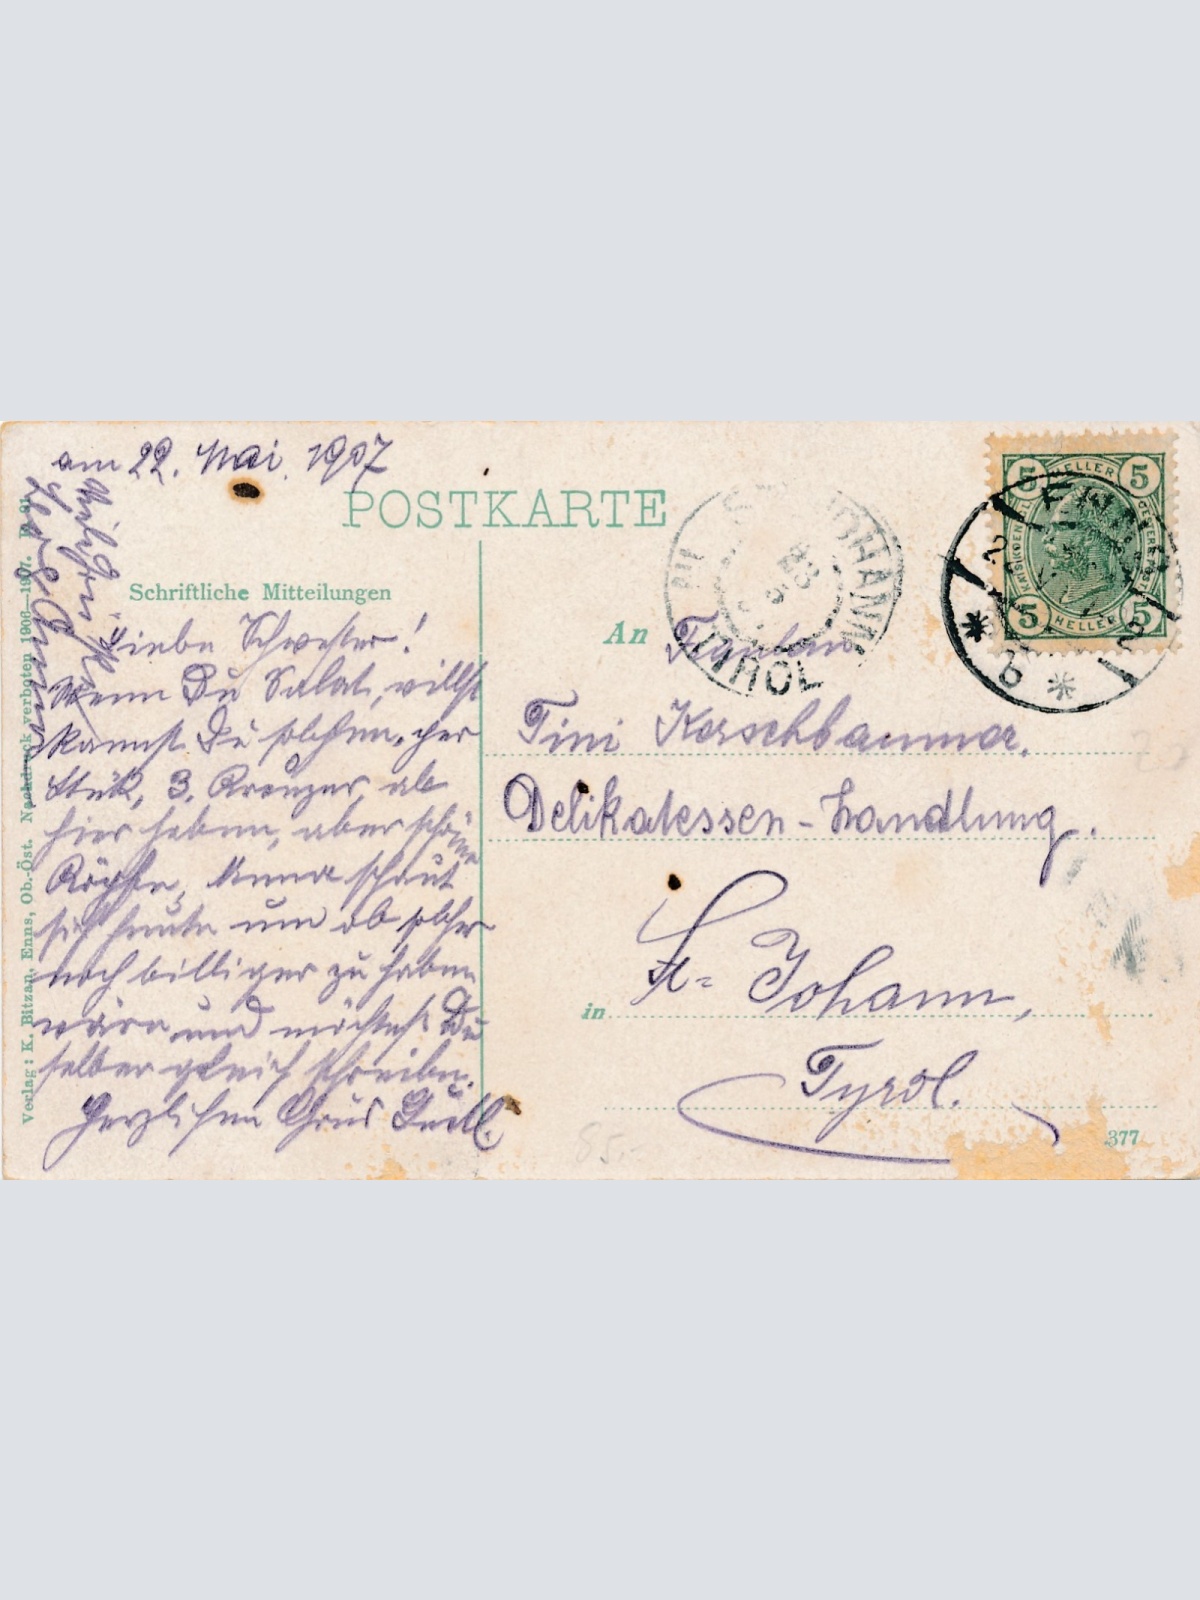 am 22. Mai 1907
POSTKARTE
Schriftliche Mitteilungen
Liebe Schwester!
Wenn Du Salat willst
kannst Du solchen, per
Stük, 3. Kreuzer, ab
hier haben, aber schöne
Köpfe, Anna schaut
sich heute um ob solcher
noch billiger zu haben
wäre und möchtest Du
selber gleich schreiben.
Herzlichen Grus
Verlag: K. Bitzan, Enns, Ob.-Öst. Nachdruck verboten 1906–1907.
An Fräulein
Tini Kerschbaumer.
Delikatessen-Handlung.
in St. Johann,
Tyrol.
377
85.-
5 HELLER 5
5 HELLER 5
ENNS
TIROL